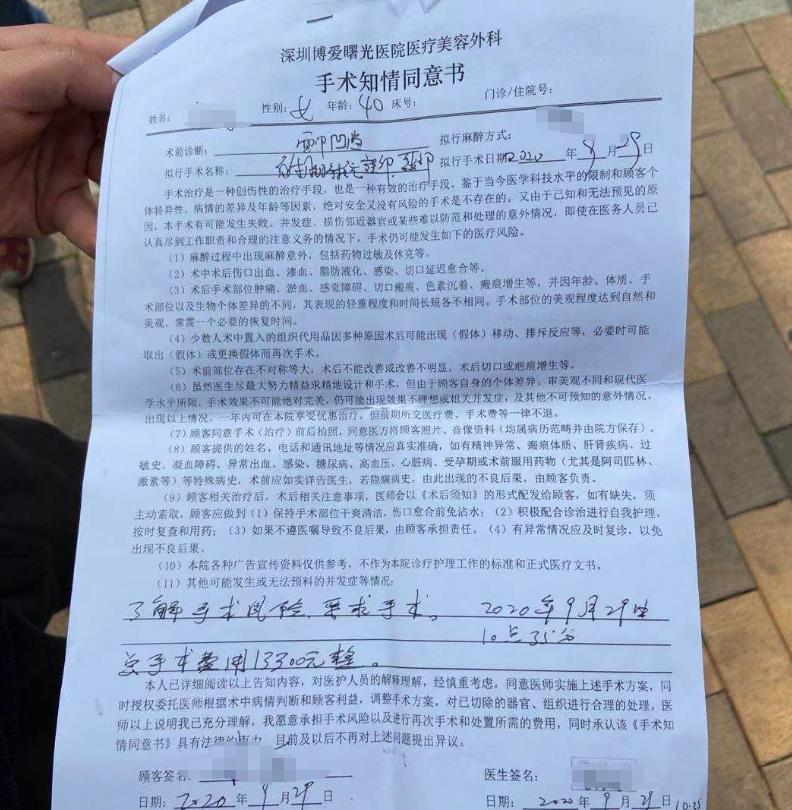 深圳博爱曙光医院医疗美容外科
手术知情同意书
姓名: 性别: 女 年龄: 40 床号: 门诊/住院号:
术前诊断: 面部凹陷 拟行麻醉方式:
拟行手术名称: 拟行手术日期2020 年9月29日
手术治疗是一种创伤性的治疗手段，也是一种有效的治疗手段。鉴于当今医学科技水平的限制和顾客个
体特异性、病情的差异及年龄等因素，绝对安全又没有风险的手术是不存在的。又由于已知和无法预见的原
因，本手术有可能发生失败、并发症、损伤邻近器官或某些难以防范和处理的意外情况，即使在医务人员已
认真尽到工作职责和合理的注意义务的情况下，手术仍可能发生如下的医疗风险。
（1）麻醉过程中出现麻醉意外，包括药物过敏及休克等。
（2）术中术后伤口出血、渗血、脂肪液化、感染、切口延迟愈合等。
（3）术后手术部位肿痛、淤血、感觉障碍、切口瘢痕、色素沉着、瘢痕增生等，并因年龄、体质、手
术部位以及生物个体差异的不同，其表现的轻重程度和时间长短各不相同。手术部位的美观程度达到自然和
美观，常需一个必要的恢复时间。
（4）少数人术中置入的组织代用品因多种原因术后可能出现（假体）移动、排斥反应等，必要时可能
取出（假体）或更换假体而再次手术。
（5）术前部位存在不对称等大，术后不能改善或改善不明显，术后切口或疤痕增生等。
（6）虽然医生尽最大努力精益求精地设计和手术，但由于顾客自身的个体差异、审美观不同和现代医
学水平所限，手术效果不可能绝对完美，仍可能出现效果不理想或相关并发症，及其他不可预知的意外情况，
出现以上情况，一年内可在本院享受优惠治疗，但前期所交医疗费、手术费等一律不退。
（7）顾客同意手术（治疗）前后拍照，同意医方将顾客照片、音像资料（均属病历范畴并由院方保存）。
（8）顾客提供的姓名、电话和通讯地址等情况应真实准确，如有精神异常、瘢痕体质、肝肾疾病、过
敏史、凝血障碍、异常出血、感染、糖尿病、高血压、心脏病、受孕期或术前服用药物（尤其是阿司匹林、
激素等）等特殊病史，术前应如实详告医生，若隐瞒病史，由此出现的不良后果，由顾客负责。
（9）顾客相关治疗后，术后相关注意事项，医师会以《术后须知》的形式配发给顾客，如有缺失，须
主动索取，顾客应做到（1）保持手术部位干爽清洁，伤口愈合前免沾水；（2）积极配合诊治进行自我护理，
按时复查和用药；（3）如果不遵医嘱导致不良后果，由顾客承担责任。（4）有异常情况应及时复诊，以免
出现不良后果。
（10）本院各种广告宣传资料仅供参考，不作为本院诊疗护理工作的标准和正式医疗文书。
（11）其他可能发生或无法预料的并发症等情况:
了解手术风险，要求手术。 2020年9月29日
10点35分
总手术费用13300元整。
本人已详细阅读以上告知内容，对医护人员的解释理解，经慎重考虑，同意医师实施上述手术方案，同
时授权委托医师根据术中病情判断和顾客利益，调整手术方案，对已切除的器官、组织进行合理的处理。医
师以上说明我已充分理解，我愿意承担手术风险以及进行再次手术和处置所需的费用，同时承认该《手术知
情同意书》具有法律效力，目前及以后不再对上述问题提出异议。
顾客签名: 医生签名:
日期: 2020 年 9 月 29 日 日期: 2020 年 9 月 29 日 10:35